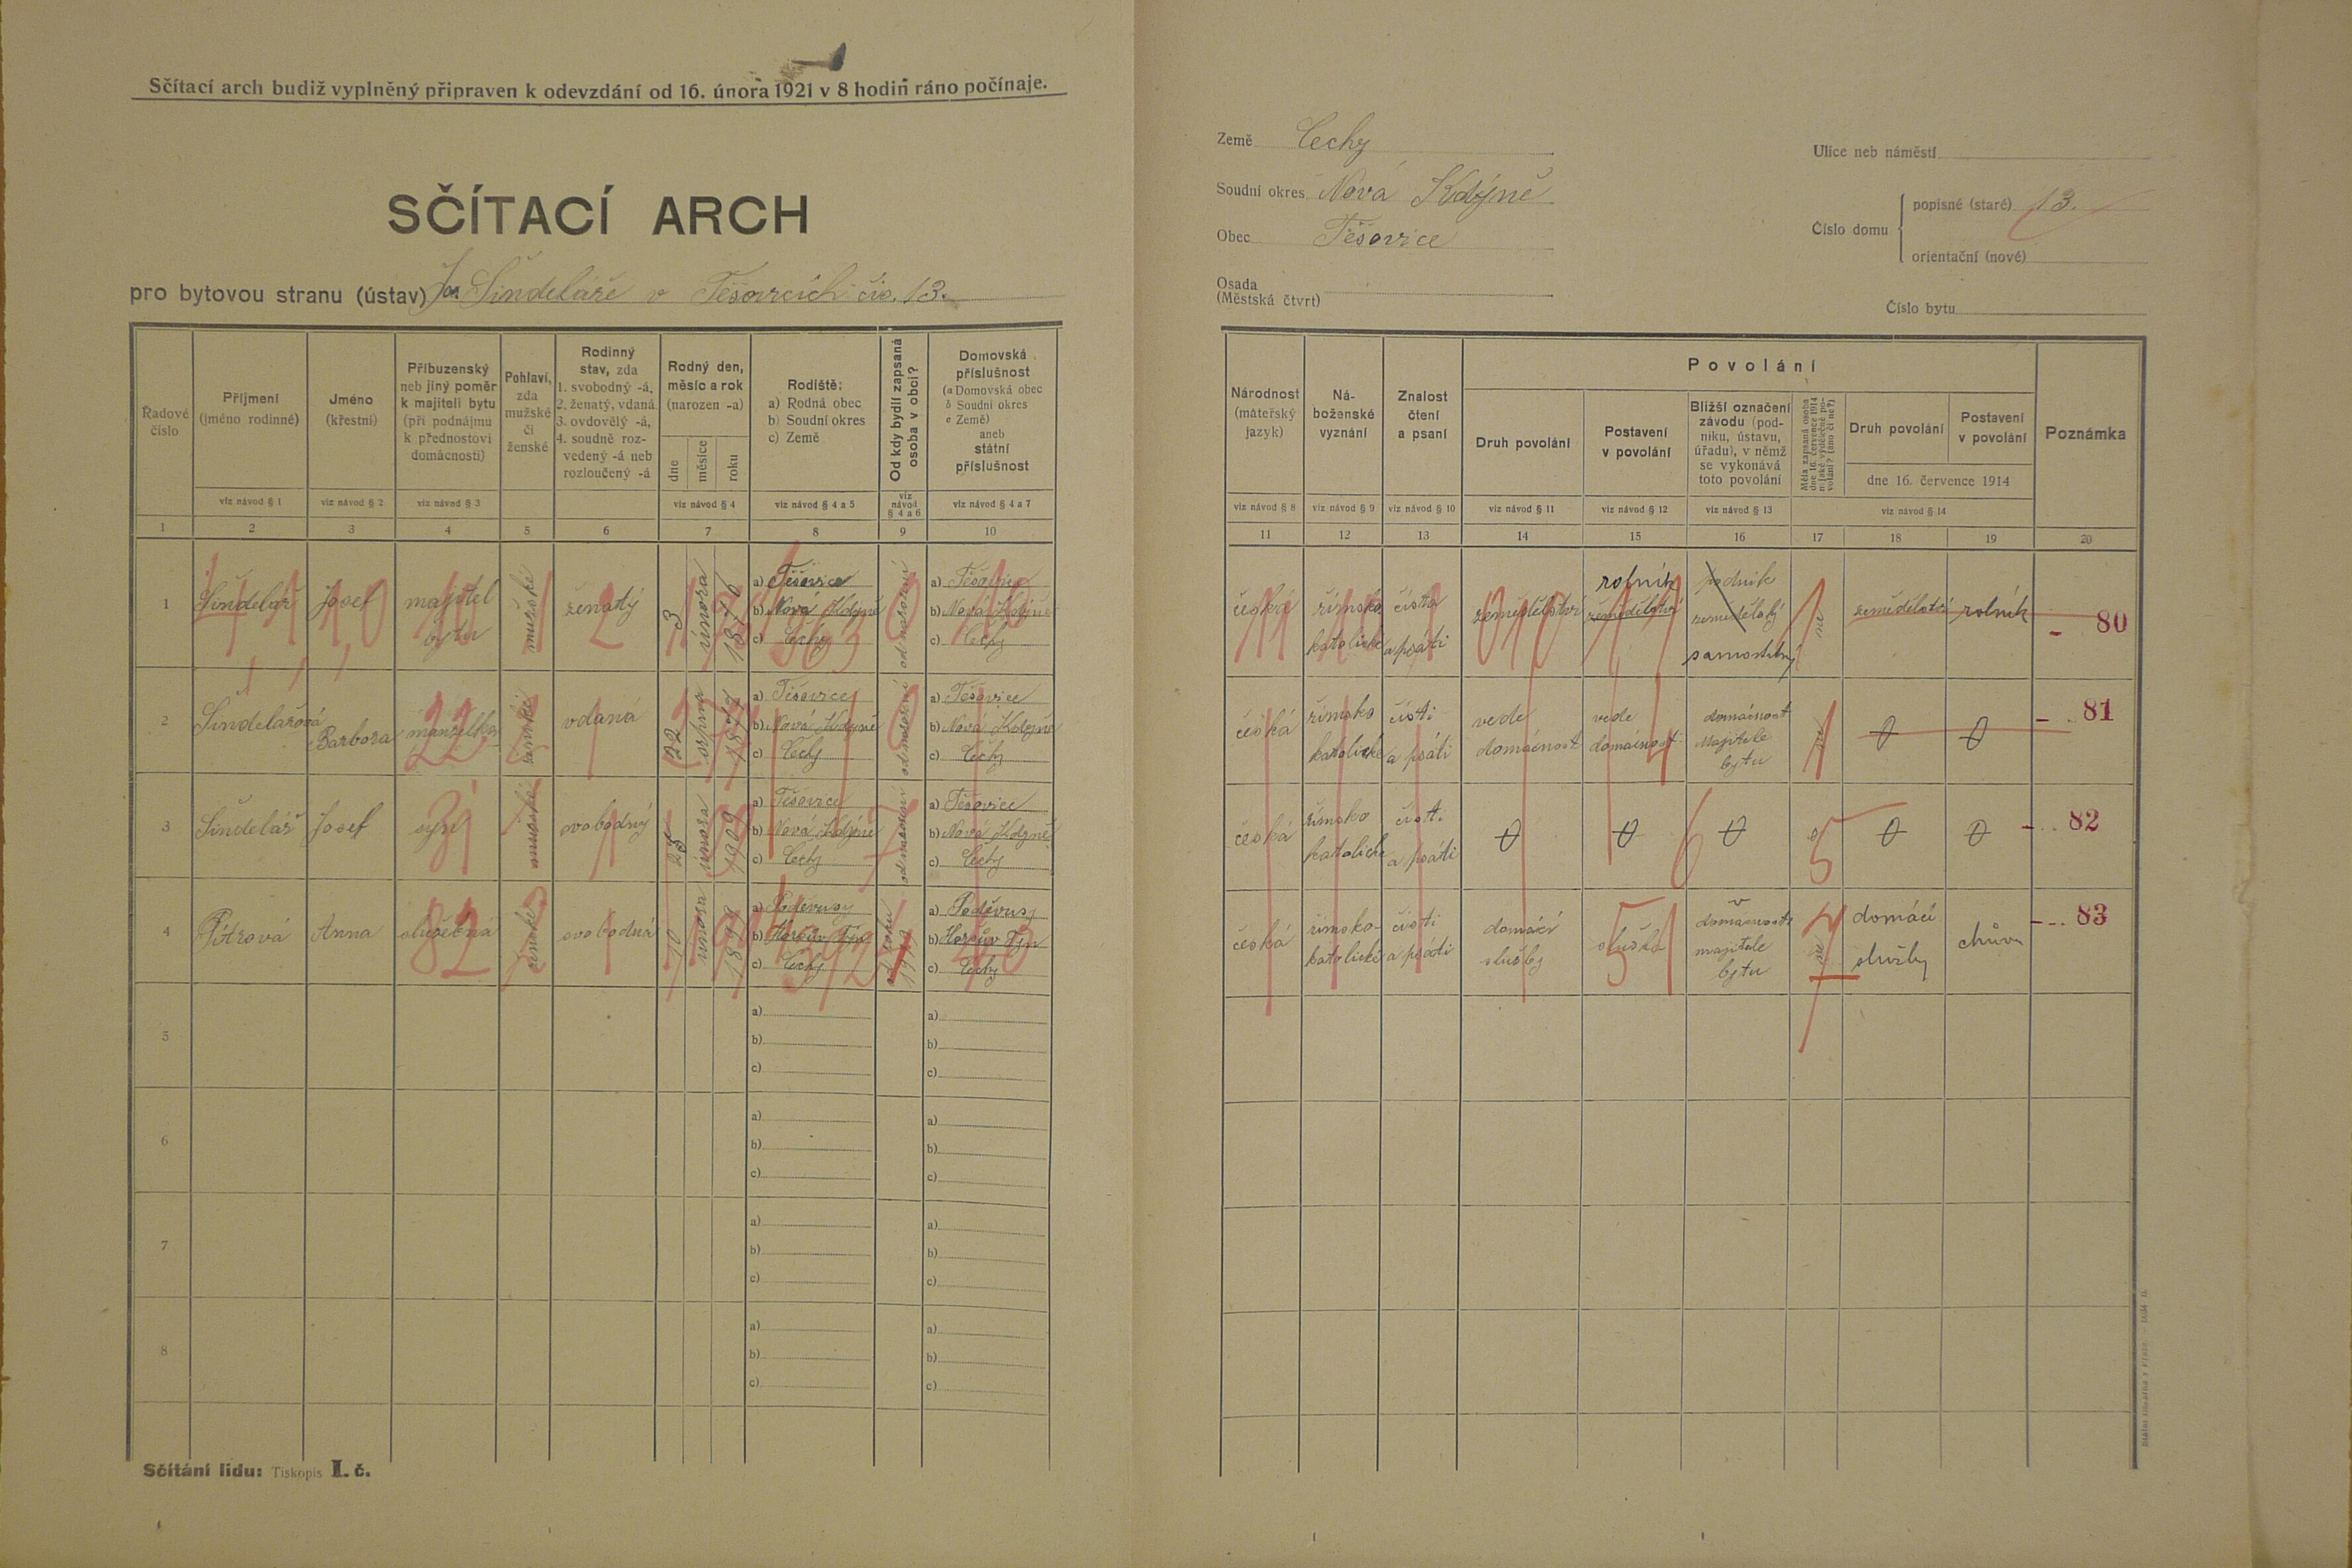 Sčítací arch budiž vyplněný připraven k odevzdání od 16. února 1921 v 8 hodin ráno počínaje.
SČÍTACÍ ARCH
pro bytovou stranu (ústav) Jos. Šindeláře v Těšovicích čis. 13.
Země Čechy
Soudní okres Nová Kdýně
Obec Těšovice
Osada
(Městská čtvrt)
Ulice neb náměstí
Číslo domu
popisné (staré) 13.
orientační (nové)
Číslo bytu
Řadové číslo
Příjmení (jméno rodinné)
Jméno (křestní)
Příbuzenský neb jiný poměr k majiteli bytu (při podnájmu k přednostovi domácnosti)
Pohlaví, zda mužské či ženské
Rodinný stav, zda 1. svobodný -á, 2. ženatý, vdaná 3. ovdovělý -á, 4. soudně rozvedený -á neb rozloučený -á
Rodný den, měsíc a rok (narozen -a)
dne měsíce roku
Rodiště: a) Rodná obec b) Soudní okres c) Země
Od kdy bydlí zapsaná osoba v obci?
Domovská příslušnost (a Domovská obec b Soudní okres c Země) aneb státní příslušnost
viz návod § 1 viz návod § 2 viz návod § 3 viz návod § 4 viz návod § 4 a 5 viz návod § 4 a 6 viz návod § 4 a 7
1 2 3 4 5 6 7 8 9 10
Národnost (mateřský jazyk)
Náboženské vyznání
Znalost čtení a psaní
Povolání
Druh povolání
Postavení v povolání
Bližší označení závodu (podniku, ústavu, úřadu), v němž se vykonává toto povolání
Měla zapsaná osoba dne 16. července 1914 nějaké výdělečné povolání? (ano či ne?)
Druh povolání
Postavení v povolání
dne 16. července 1914
Poznámka
viz návod § 8 viz návod § 9 viz návod § 10 viz návod § 11 viz návod § 12 viz návod § 13 viz návod § 14
11 12 13 14 15 16 17 18 19 20
1 Šindelář Josef majitel bytu mužské ženatý 3 února 1876 a) Těšovice b) Nová Kdyně c) Čechy od narození a) Těšovice b) Nová Kdyně c) Čechy
česká římsko katolické čísti a psáti zemědělství rolník zemědělství podnik zemědělský samostatný ne zemědělství rolník 80
2 Šindelářová Barbora manželka ženské vdaná 22 srpna a) Těšovice b) Nová Kdyně c) Čechy od narození a) Těšovice b) Nová Kdyně c) Čechy
česká římsko katolické čísti a psáti vede domácnost vede domácnost domácnost majitele bytu ne 0 0 81
3 Šindelář Josef syn mužské svobodný 25 února 1909 a) Těšovice b) Nová Kdyně c) Čechy od narození a) Těšovice b) Nová Kdyně c) Čechy
česká římsko katolické čísti a psáti 0 0 0 0 0 0 82
4 Anna služebná ženské svobodná 10 února 1899 a) Poděvusy b) Horšův Týn c) Čechy a) Poděvusy b) Horšův Týn c) Čechy
česká římsko-katolické čísti a psáti domácí služby služka v domácnosti majitele bytu ne domácí služby chůva 83
5 a) b) c) a) b) c)
6 a) b) c) a) b) c)
7 a) b) c) a) b) c)
8 a) b) c) a) b) c)
Sčítání lidu: Tiskopis I. č.